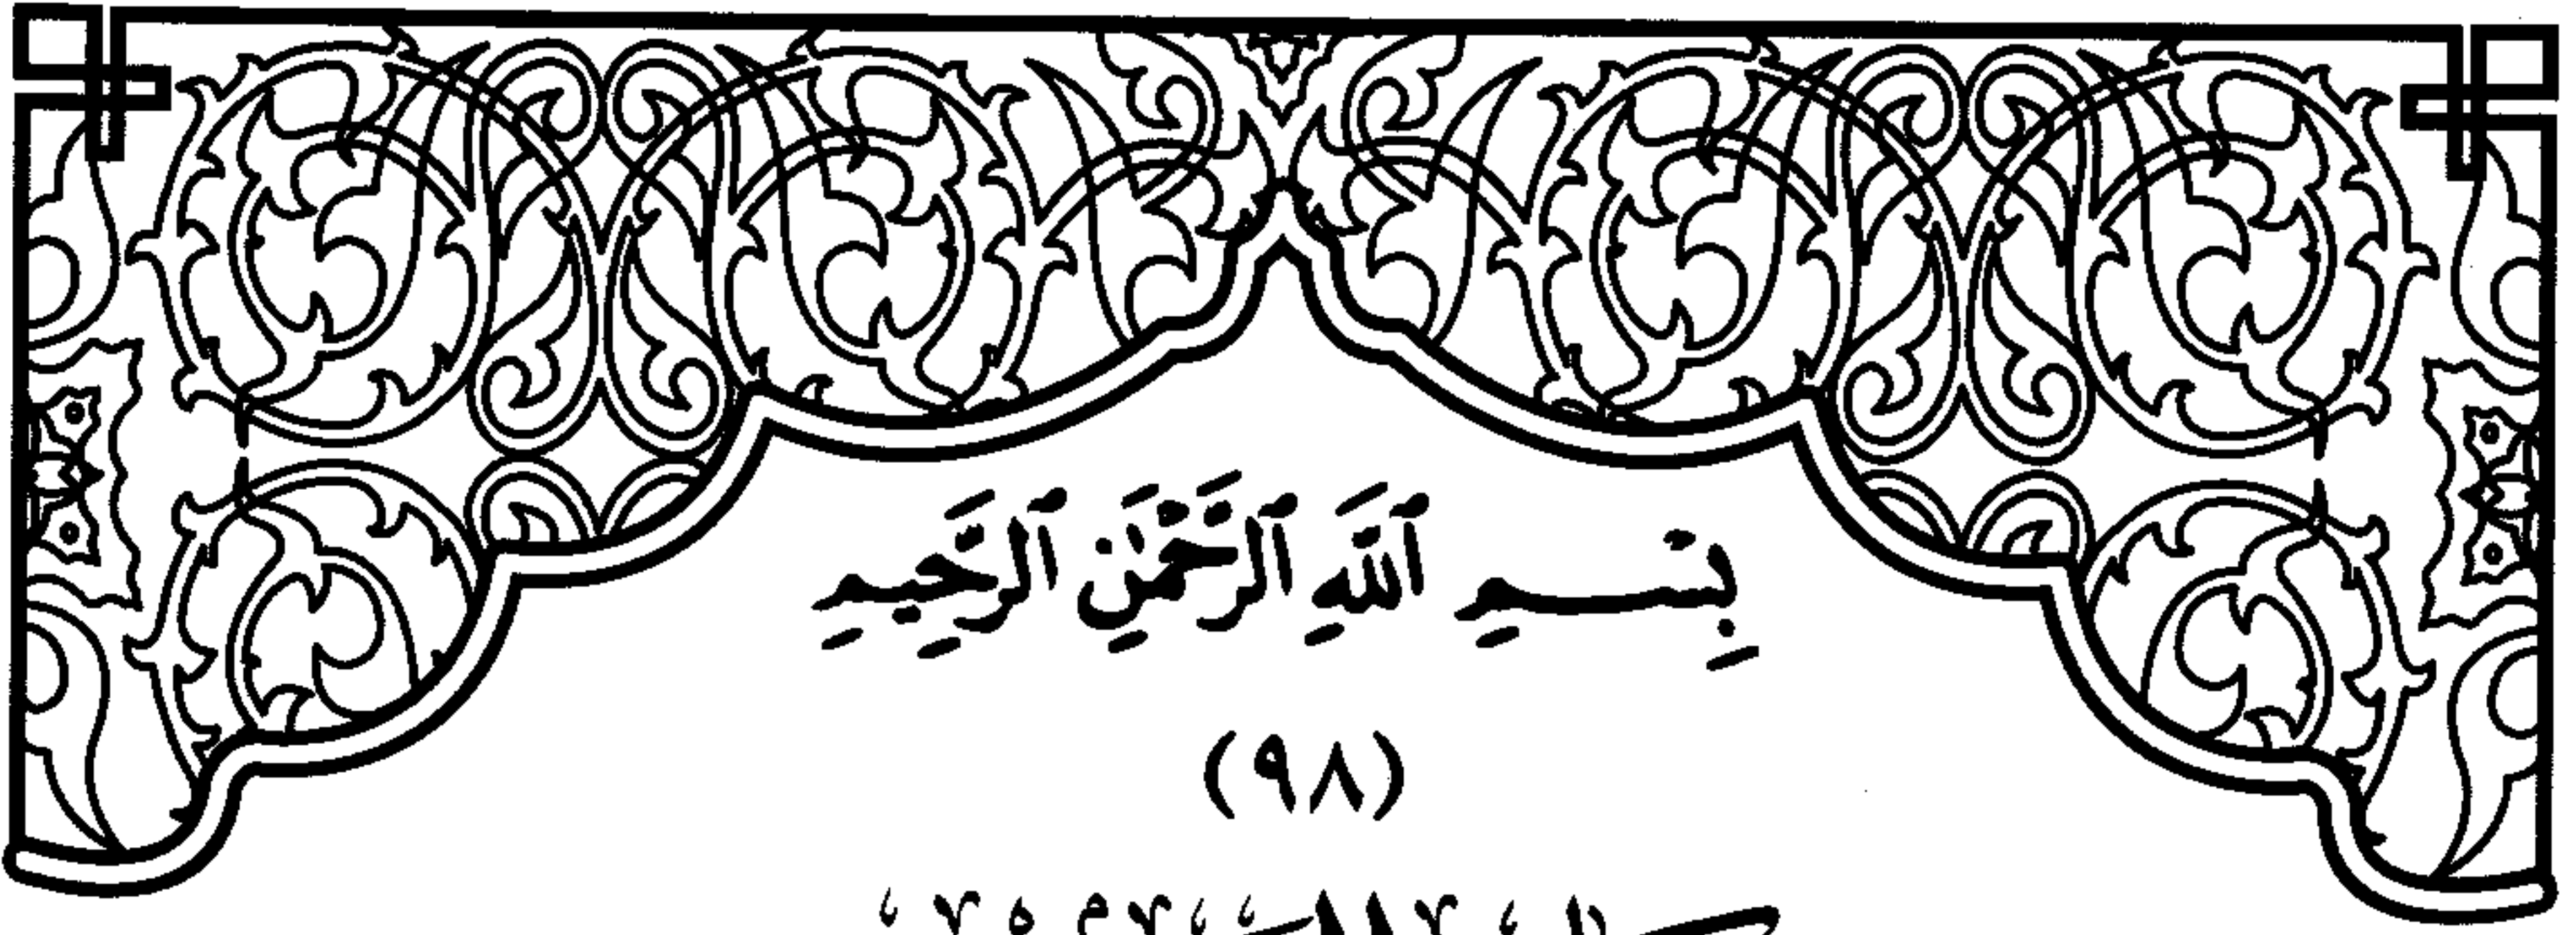 بِسْمِ ٱللَّهِ ٱلرَّحْمَٰنِ ٱلرَّحِيمِ
(٩٨)